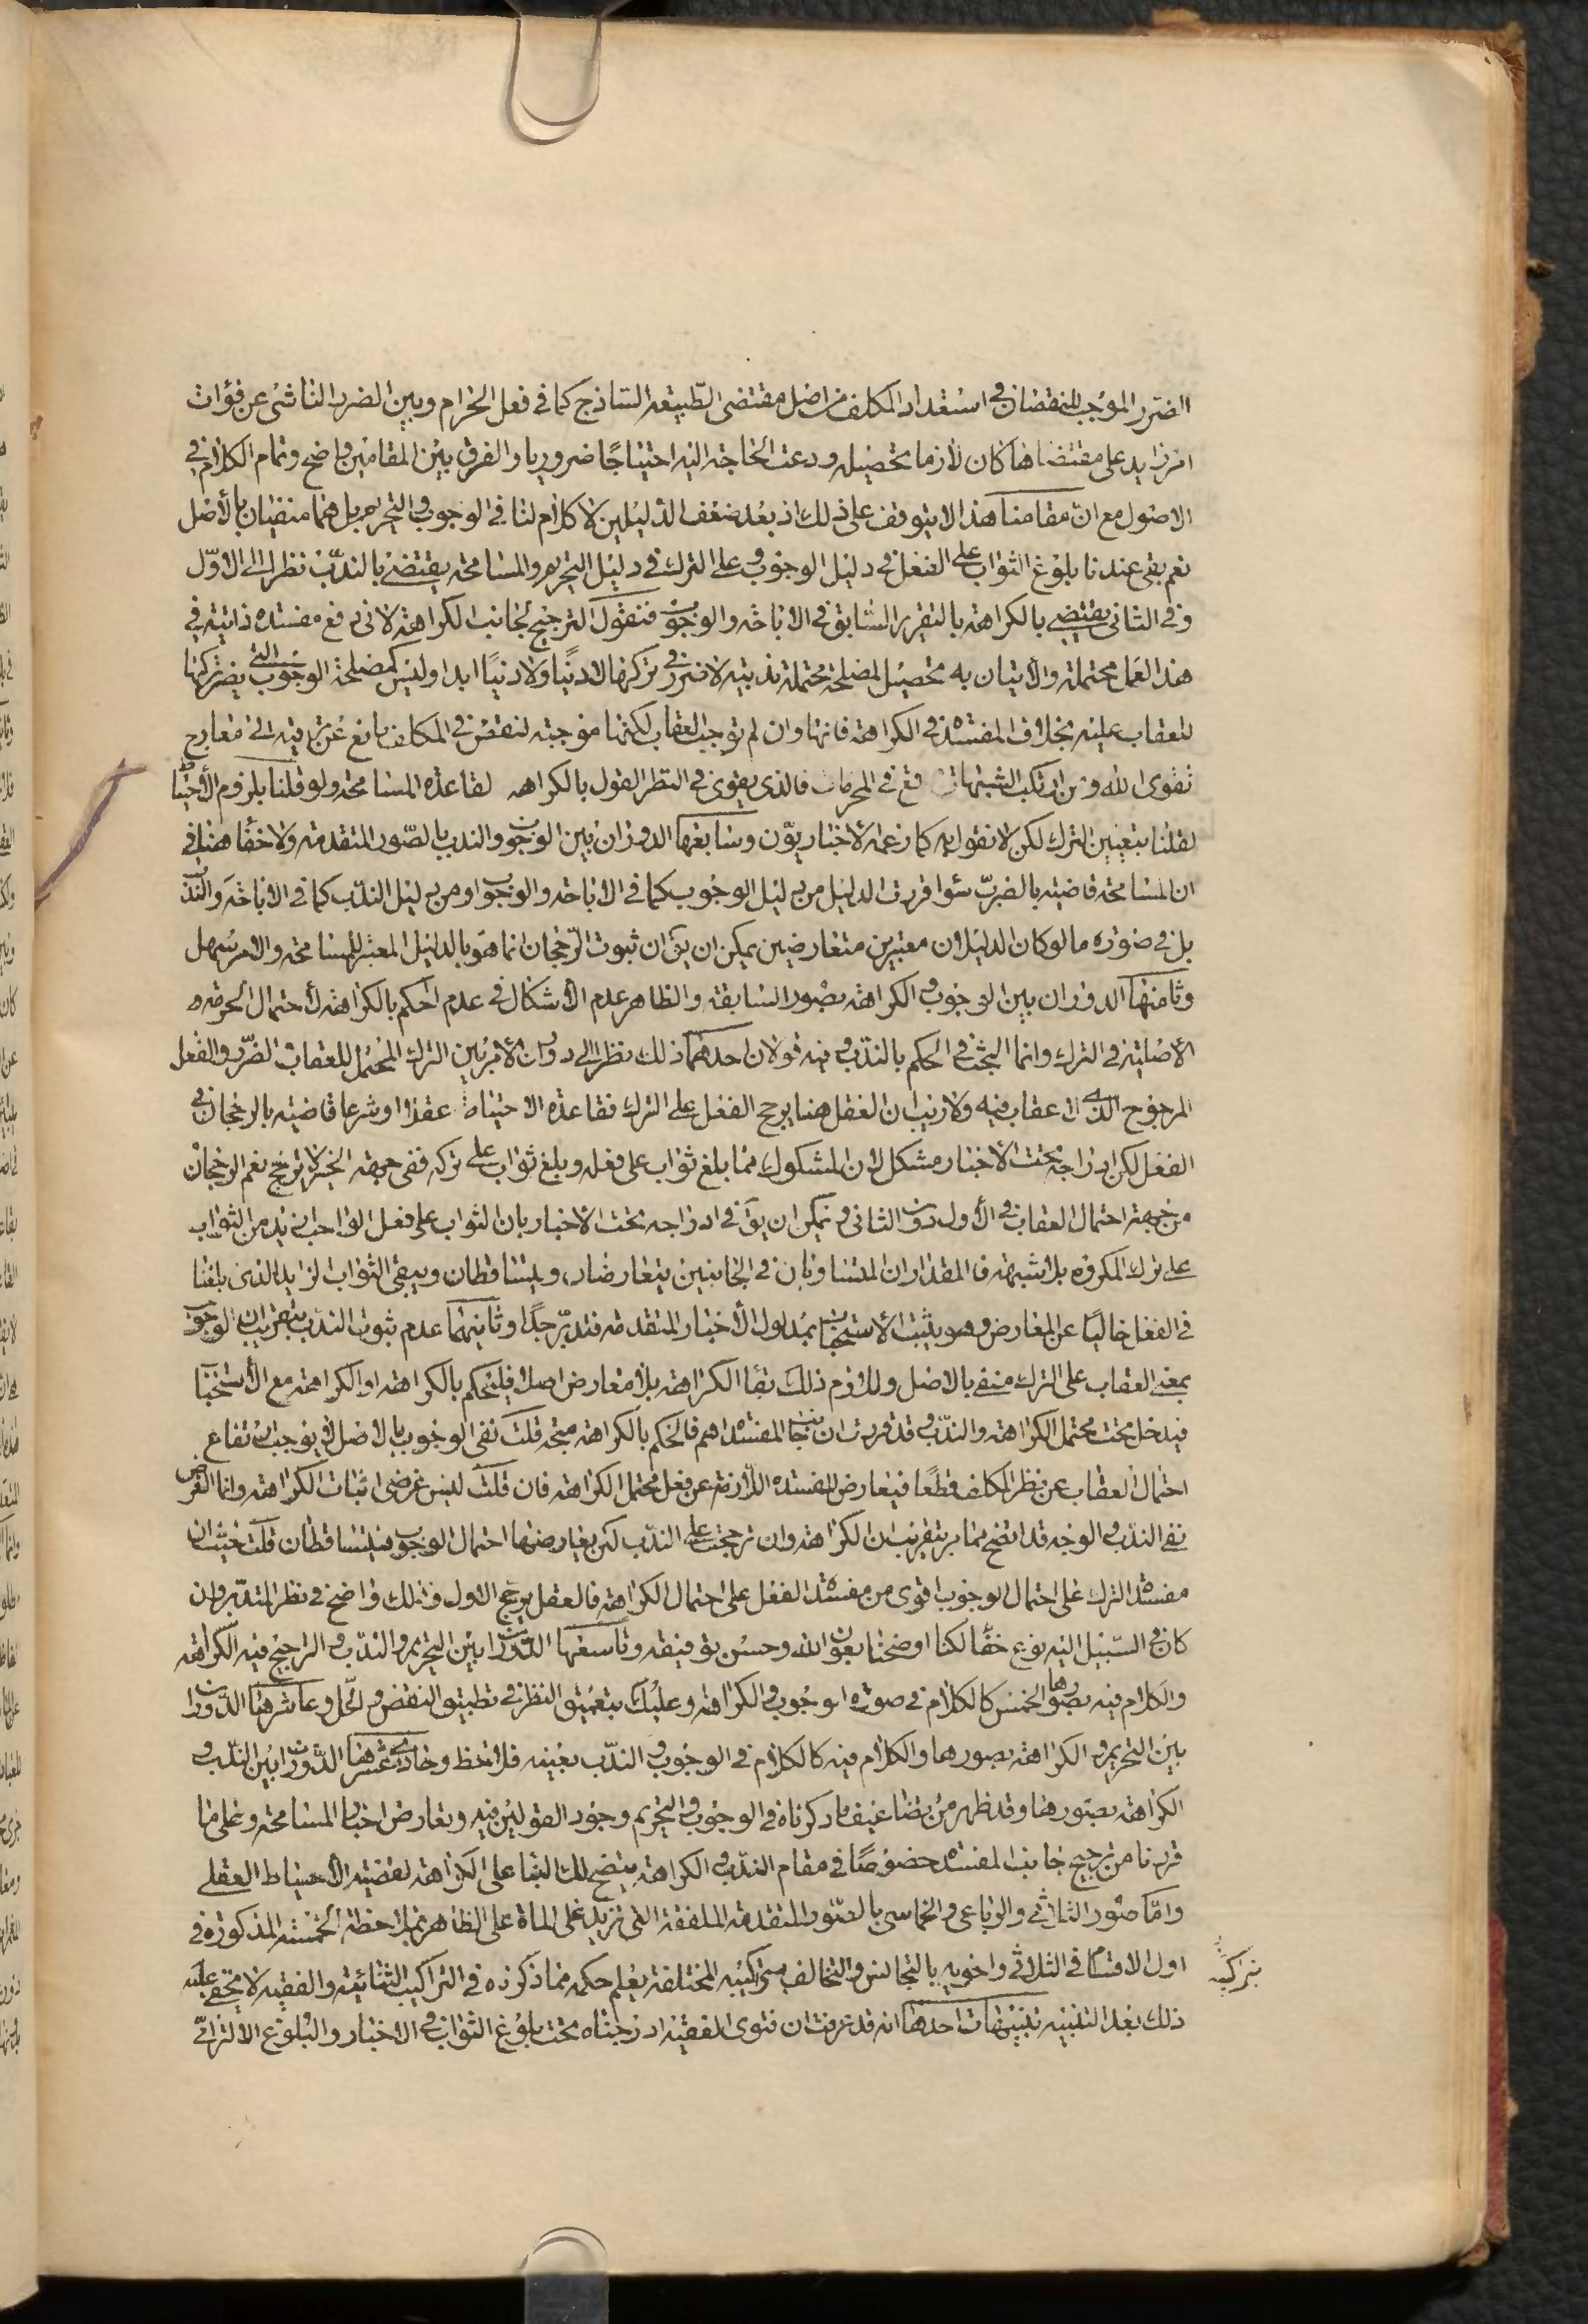 الضرر الموجب للنقصان في استعداد المكلف من اصل مقتضى الطبيعة الساذج كما في فعل الحرام وبين الضرر الناشئ عن فوات
امر زايد على مقتضاها كان لازما تحصيله ودعت الحاجة اليه احتياجًا ضروريا والفرق بين المقامين واضح وتمام الكلام في
الاصول مع انّ مقامنا هذا لا يتوقف على ذلك اذ بعد ضعف الدليلين لا كلام لنا في الوجوب والتحريم بل هما منفيان بالأصل
نعم بقي عندنا بلوغ الثواب على الفعل في دليل الوجوب وعلى الترك في دليل التحريم والمسامحة يقتضي بالندب نظرا الى الاوّل
وفي الثاني يقتضي بالكراهة بالتقرير السابق في الاباحة والوجوب فنقول الترجيح لجانب الكراهة لانه رفع مفسدة ذاتية في
هذا العمل محتملة والأتيان به تحصيل لمصلحة محتملة ندبية لا ضرر في تركها لا دنيًا ولا دنيًا ابدا وليس كمصلحة الوجوب التي يضر تركها
للعقاب عليه بخلاف المفسدة في الكراهة فانها وان لم توجب العقاب لكنها موجبة لنقص في المكلف مانع عن ترقيه الى معارج
تقوى الله ومن ارتكب الشبهات وقع في المحرمات فالذي يقوى في النظر القول بالكراهه لقاعدة المسامحة ولو قلنا بلزوم الأحتياط
لقلنا بتعيين الترك لكن لا نقول به كما زعمه الاخباريوّن وسابعها الدوران بين الوجوب والندب بالصّور المتقدمة ولا خفأ هنا في
ان المسامحة قاضية بالضرب سوا قررت الدليل من دليل الوجوب كما في الاباحة والوجوب او من دليل الندب كما في الاباحة والندب
بل في صوره ما لو كان الدليلان معتبرين متعارضين يمكن ان يق ان ثبوت الرّجحان انما هو بالدليل المعتبر للمسامحة والامر سهل
وثامنها الدوران بين الوجوب والكراهة بصور السابقة والظاهر عدم الأشكال في عدم الحكم بالكراهة لأحتمال الحرمة
الأصلية في الترك وانما البحث في الحكم بالندب وفيه قولان احدهما ذلك نظرا الى دوران الأمر بين الترك المحتمل للعقاب والضرر والفعل
المرجوح الذي لا عقاب فيه ولا ريب ان العقل هنا يرجح الفعل على الترك فقاعدة الاحتياط عقلا او شرعا قاضية بالرجحان في
الفعل لكن ادراجه تحت الاخبار مشكل لان المشكوك مما بلغ ثواب على فعله وبلغ ثواب على تركه ففي جهة الخبر لا ترجح نعم الرجحان
من جهة احتمال العقاب في الأول دون الثاني ويمكن ان يق في ادراجه تحت الاخبار بان الثواب على فعل الواجب ازيد من الثواب
على ترك المكروه بلا شبهة فالمقداران المتساويان في الجانبين يتعارضان ويتساقطان ويبقى الثواب الزايد الذي بلغنا
في الفعل خاليًا عن المعارض وهو يثبت الأستحباب بمدلول الأخبار المتقدمة فتدبّر جدًا وثانيهما عدم ثبوت الندب بتقريب ان الوجوب
بمعنى العقاب على الترك منفي بالاصل ولازم ذلك بقأ الكراهة بلا معارض اصلا فليحكم بالكراهة او الكراهة مع الأستحباب
فيدخل تحت محتمل الكراهة والندب وقد قررت ان جانب المفسدة اهم فالحكم بالكراهة متجه قلت نفي الوجوب بالاصل لا يوجب ارتفاع
احتمال العقاب عن نظر المكلف قطعًا فيعارض المفسدة اللازمة عن فعل محتمل الكراهة فان قلت ليس غرضي اثبات الكراهة وانما الغرض
نفي الندب والوجه قد اتضح مما مر بتقريب ان الكراهة وان ترجحت على الندب لكن يعارضها احتمال الوجوب فيتساقطان قلت حيث ان
مفسدة الترك على احتمال الوجوب اقوى من مفسدة الفعل على احتمال الكراهة فالعقل يرجّح الاول وذلك واضح في نظر المتدبر وان
كان في السّبيل اليه نوع خفأ لكنا اوضحنا بعون الله وحسن توفيقه وتاسعها الدوران بين التحريم والندب والراجح فيه الكراهة
والكلام فيه بصورها الخمس كالكلام في صوره الوجوب والكراهة وعليك بتعميق النظر في تطبيق النقض والحل وعاشرها الدوران
بين التحريم والكراهة بصورها والكلام فيه كالكلام في الوجوب والندب بعينه فلاحظ وحادي عشرها الدوران بين الندب و
الكراهة بصورها وقد ظهر من تضاعيف ما ذكرناه في الوجوب والتحريم وجود القولين فيه وتعارض اخبار المسامحة وعلى ما
قررنا من ترجيح جانب المفسدة خصوصًا في مقام الندب والكراهة يتضح لك البنا على الكراهة لقضية الأحتياط العقلي
وامّا صور الثلاثي والرباعي والخماسي بالصّور المتقدمة الملفقة التي تزيد على الماة على الظاهر بملاحظة الخمسة المذكورة في
اول الاقسام في الثلاثي واخويه بالتجانس والتخالف بتراكيبه المختلفة يعلم حكمه مما ذكرنه في التراكيب الثنائية والفقيه لا يخفى عليه
ذلك بعد التنبيه تنبيهات احدها انه قد عرفت ان فتوى الفقيه ادرجناه تحت بلوغ الثواب في الاخبار والبلوغ الالتزامي
بتراكيبه